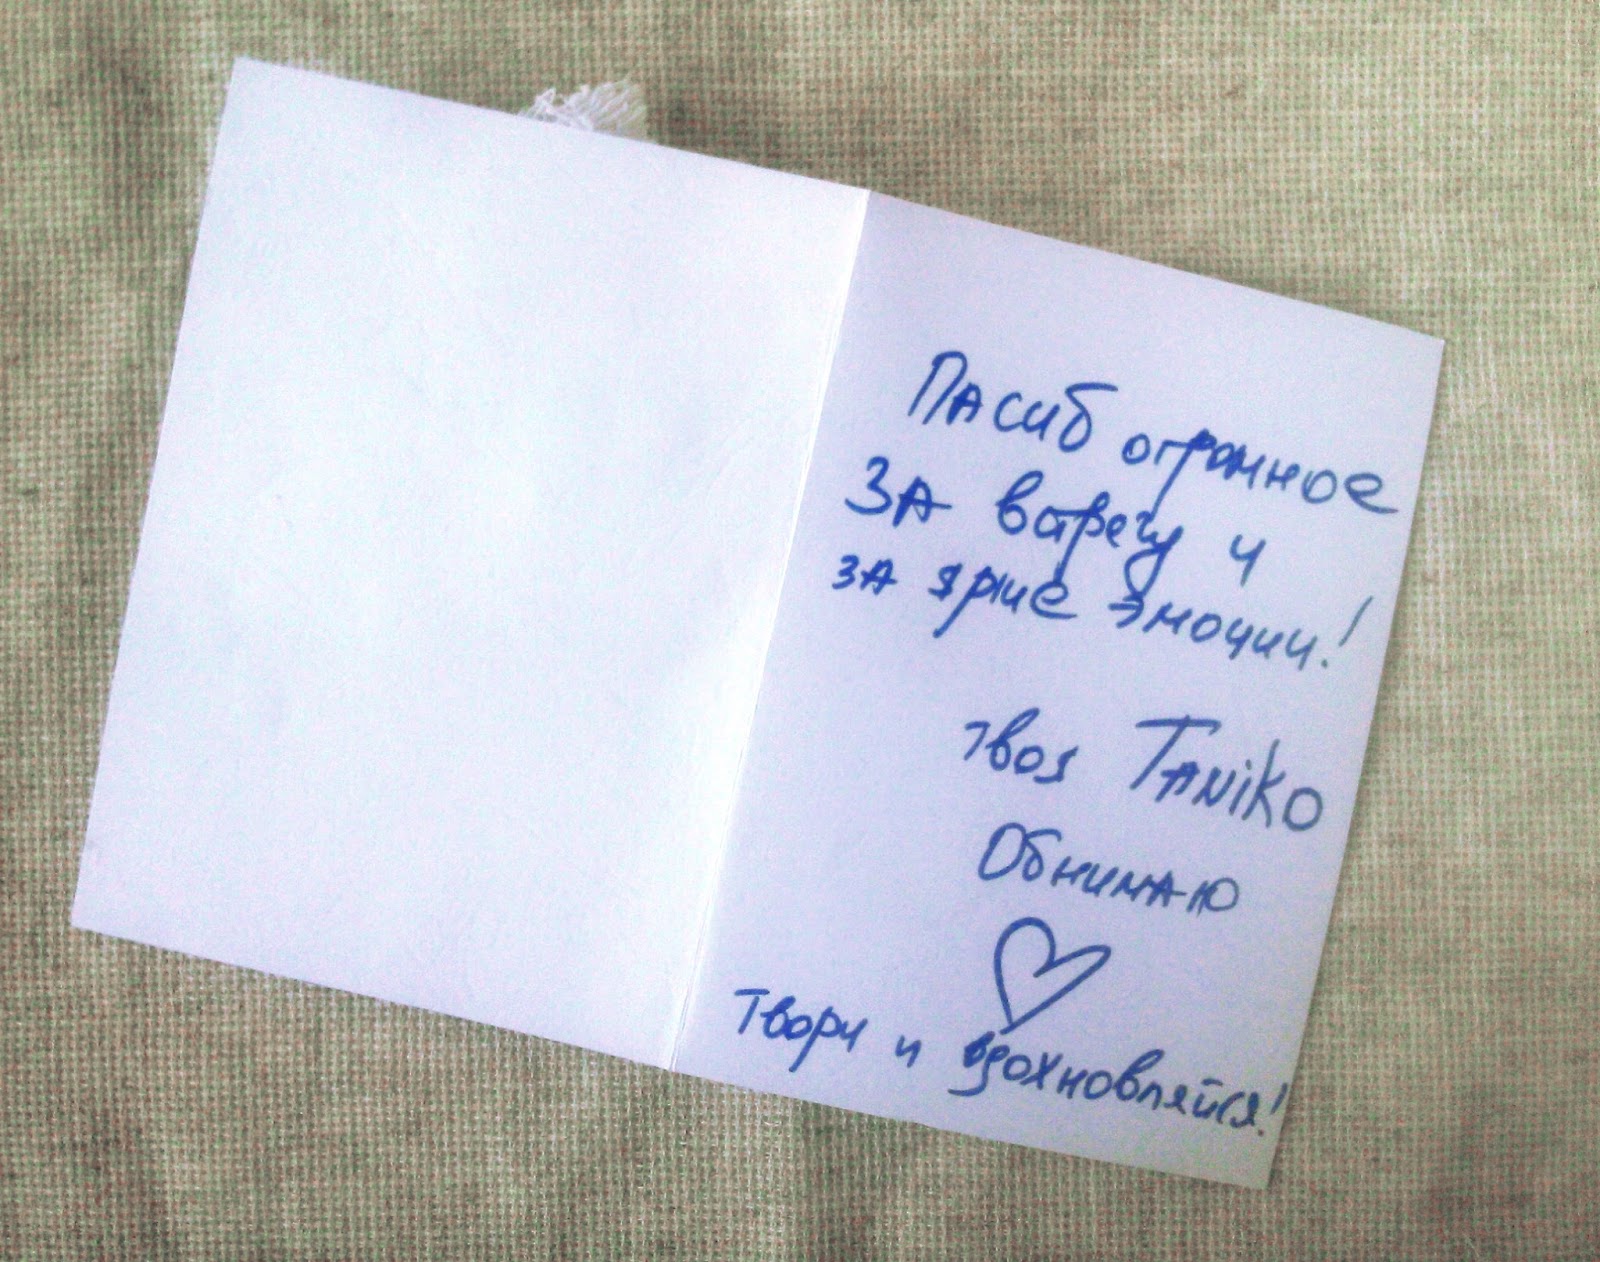 Пасиб огромное
за встречу и
за яркие эмоции!
твоя Taniko
Обнимаю
Твори и вдохновляйся!